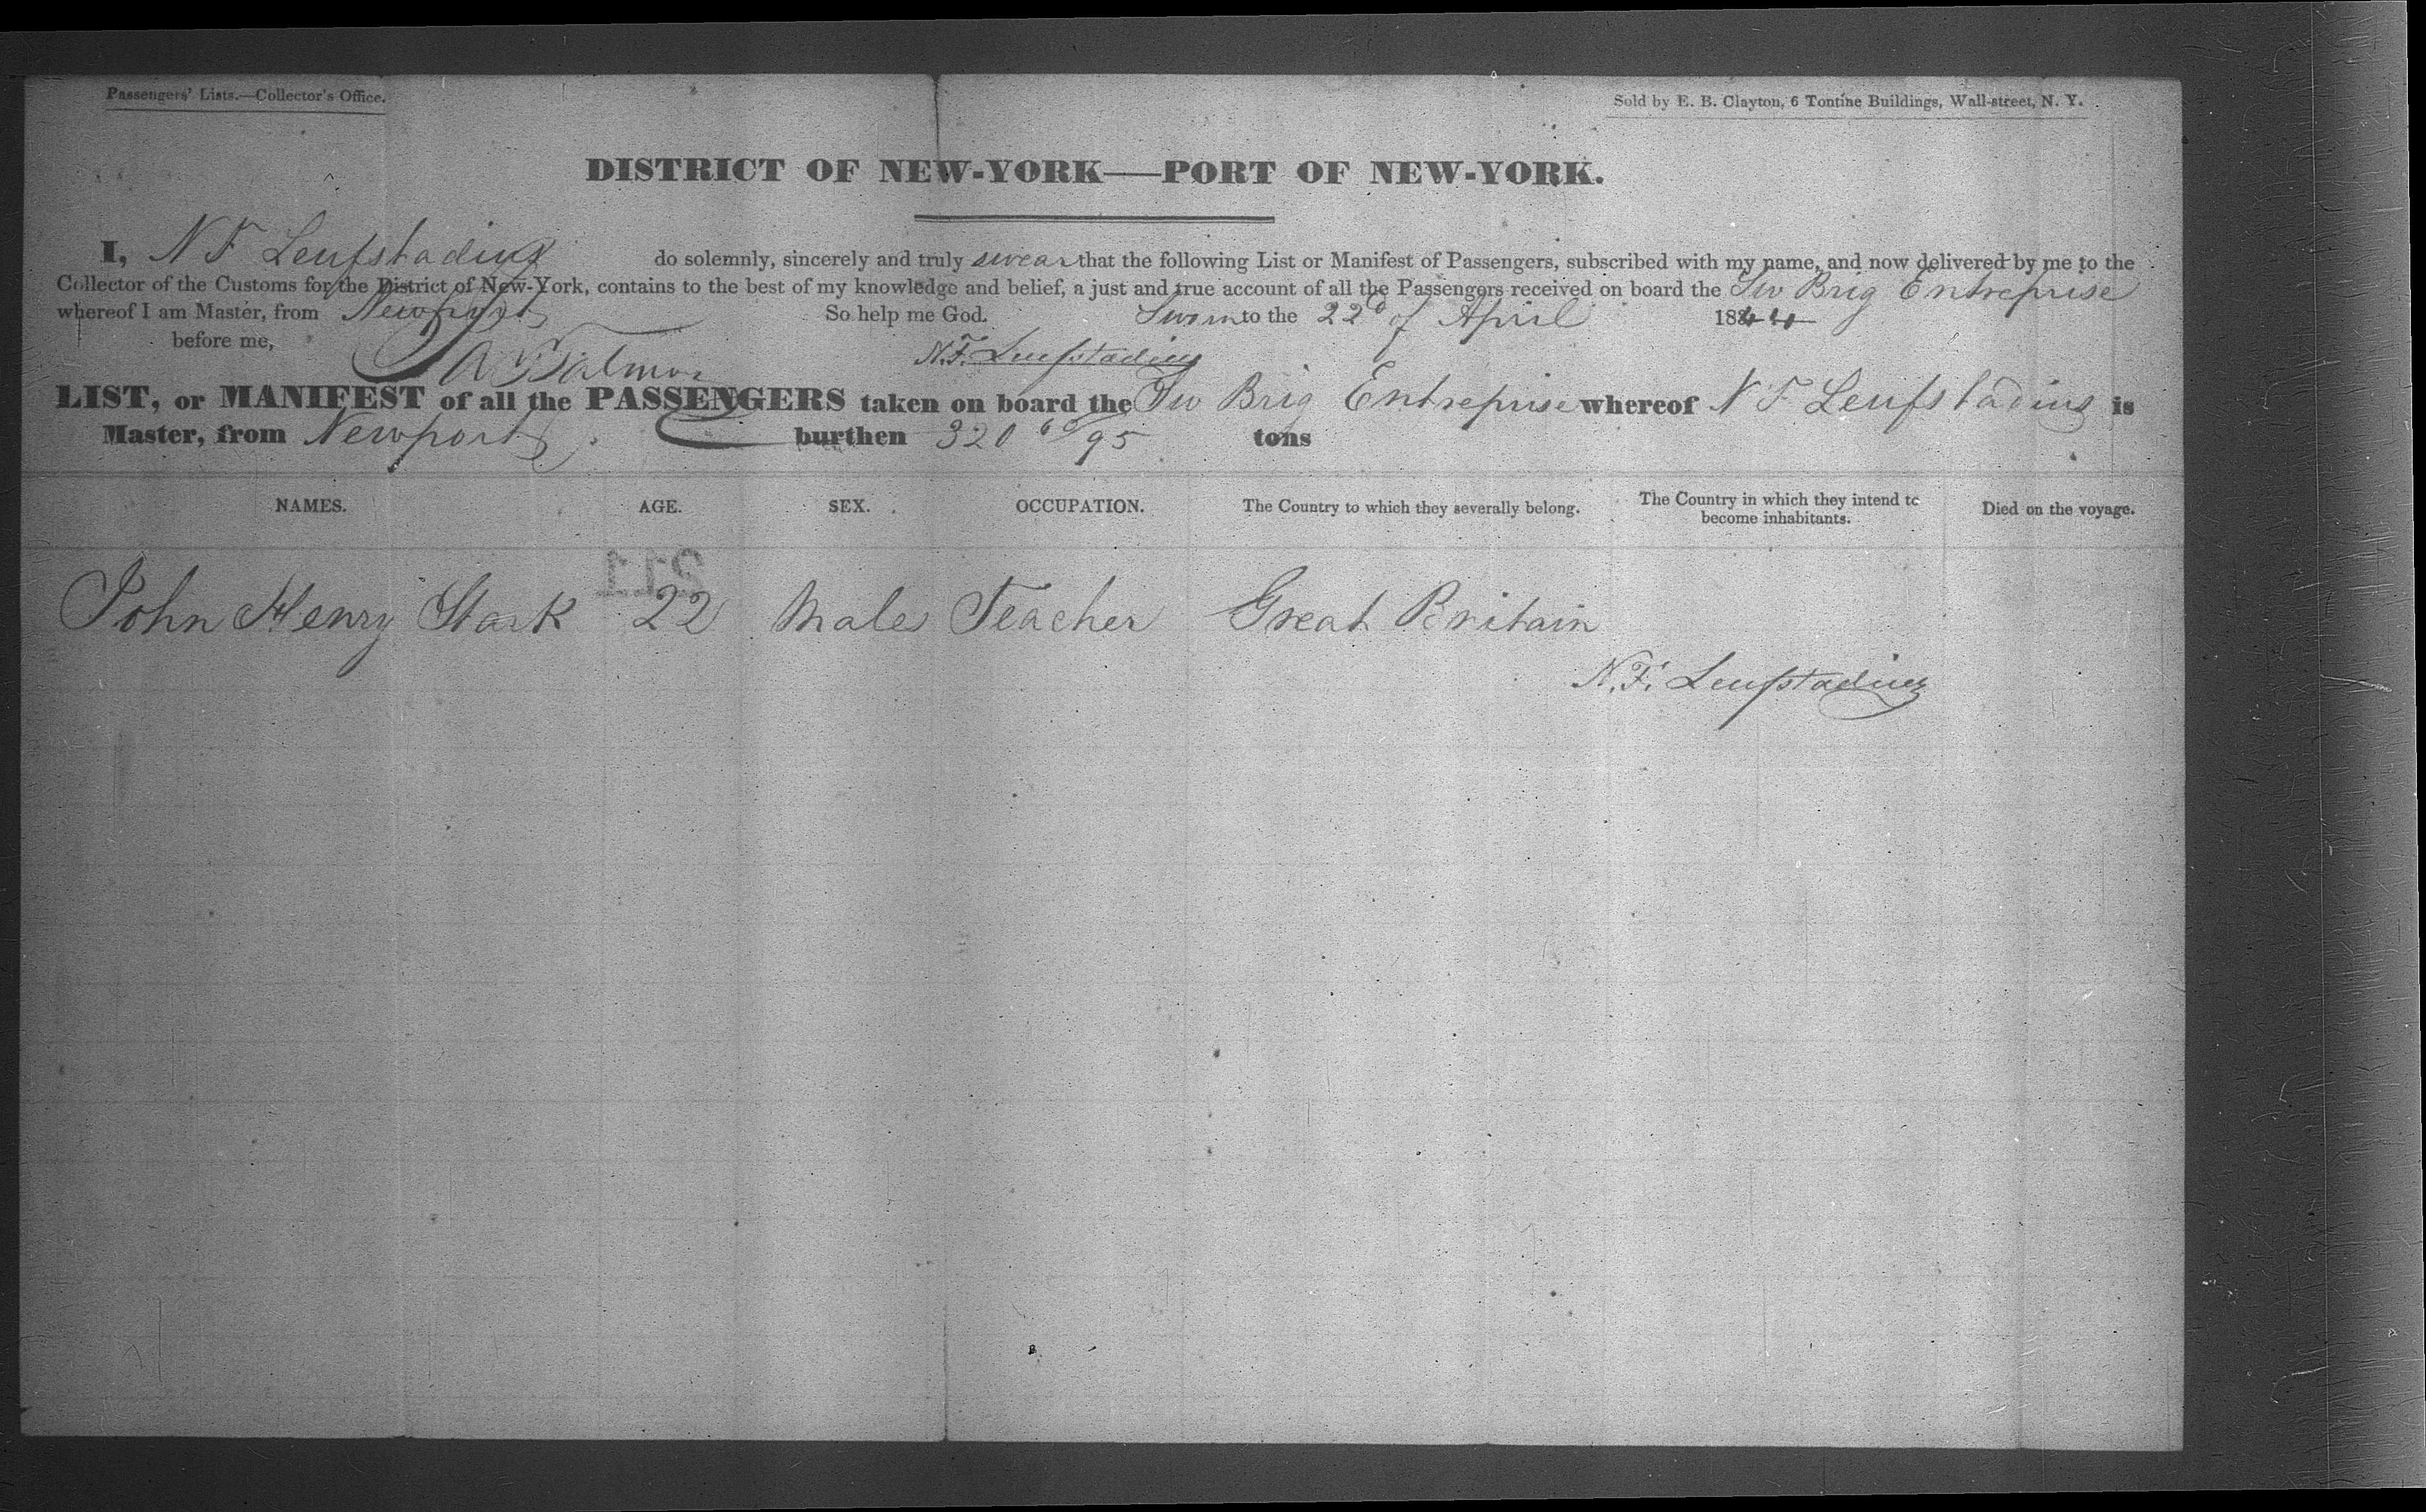 Passengers' Lists.—Collector's Office.
Sold by E. B. Clayton, 6 Tontine Buildings, Wall-street, N. Y.
DISTRICT OF NEW-YORK—PORT OF NEW-YORK.
I, N F Leufstadius do solemnly, sincerely and truly swear that the following List or Manifest of Passengers, subscribed with my name, and now delivered by me to the
Collector of the Customs for the District of New-York, contains to the best of my knowledge and belief, a just and true account of all the Passengers received on board the Sw Brig Entreprise
whereof I am Master, from Newport So help me God. Sworn to the 22d of April 1844
before me, N. F. Leufstadius
LIST, or MANIFEST of all the PASSENGERS taken on board the Sw Brig Entreprise whereof N F Leufstadius is
Master, from Newport burthen 320 /95 tons
NAMES. AGE. SEX. OCCUPATION. The Country to which they severally belong. The Country in which they intend to become inhabitants. Died on the voyage.
211
John Henry Stark 22 Male Teacher Great Britain
N. F. Leufstadius